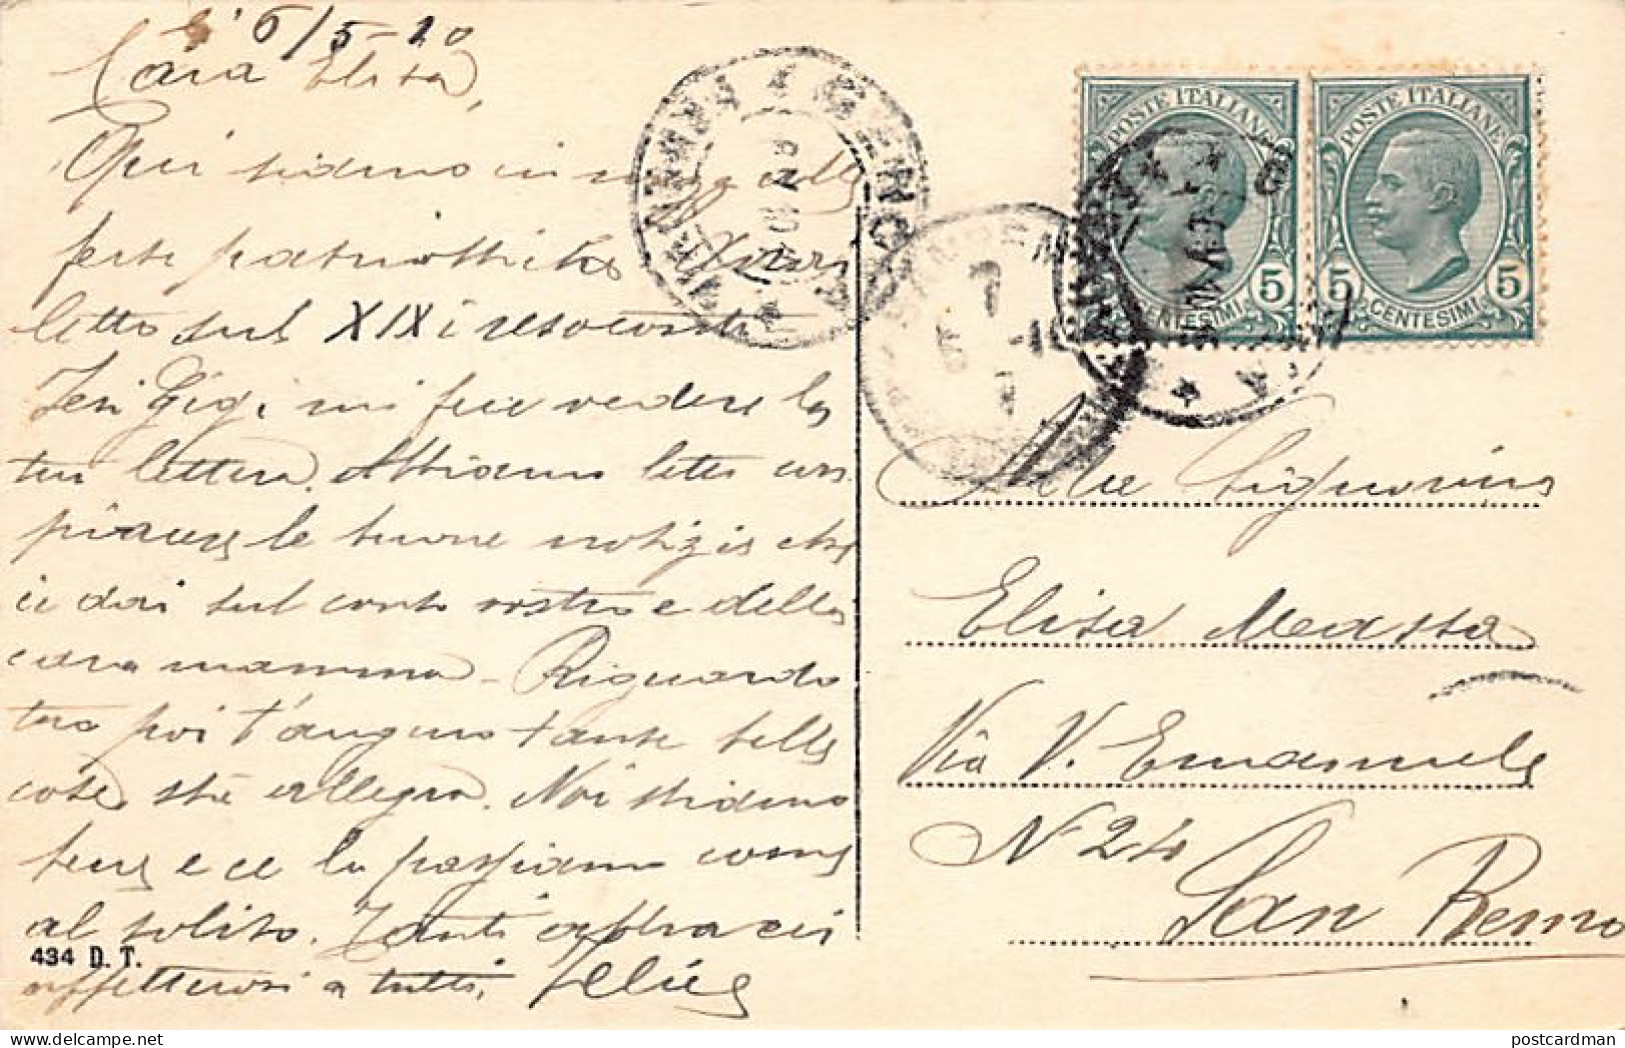 6/5-10
Cara Elisa,
Qui siamo in delle
feste patriottiche
letto sul XIX i resoconti
Ieri Gigi mi fece vedere la
tua lettera. Abbiamo letto con
piacere le buone notizie che
ci dai sul conto vostro e della
cara mamma - Riguardo
poi t'auguro tante belle
cose stà allegra. Noi stiamo
bene e ce la passiamo come
al solito. Tanti abbracci
affettuosi a tutti.
434 D. T.
POSTE ITALIANE
5 CENTESIMI
POSTE ITALIANE
5 CENTESIMI 5
Alla Signorina
Elisa Massa
Via V. Emanuele
N 24
San Remo
postcardman